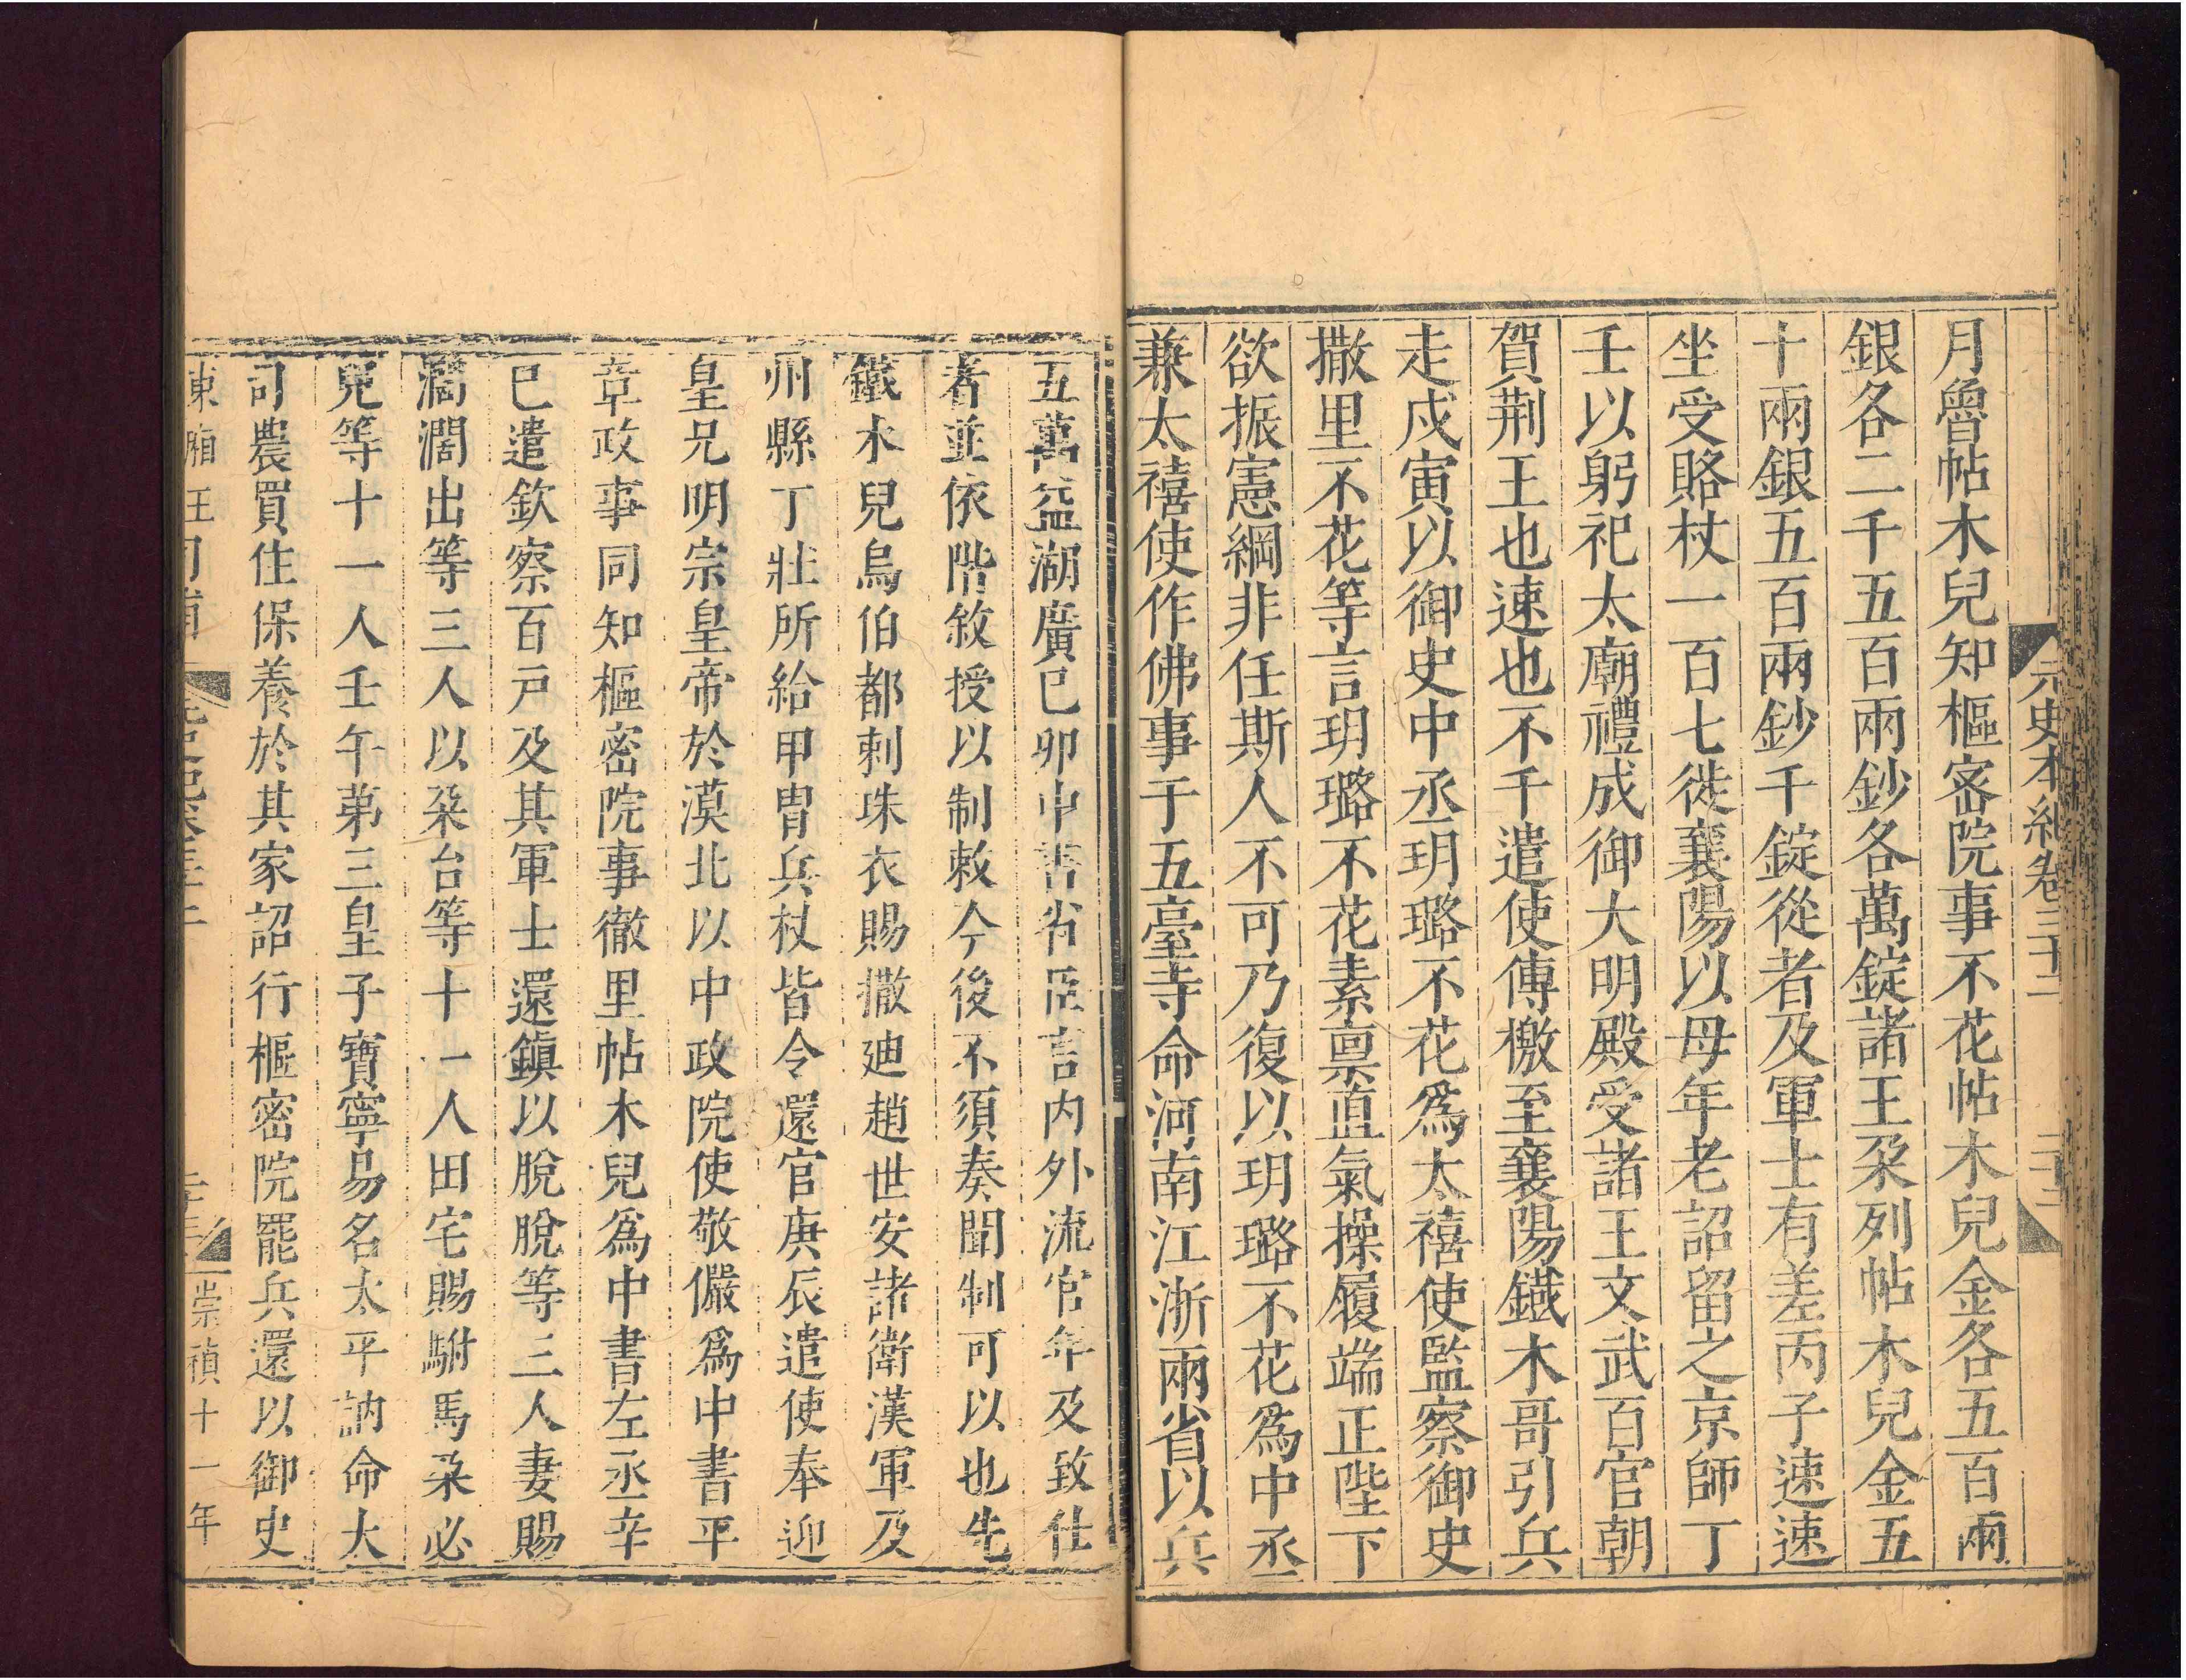 元史本紀卷三十二
二十二
月魯帖木兒知樞密院事不花帖木兒金各五百兩
銀各二千五百兩鈔各萬錠諸王朶列帖木兒金五
十兩銀五百兩鈔千錠從者及軍士有差丙子速速
坐受賂杖一百七徙襄陽以母年老詔留之京師丁
壬以躬祀太廟禮成御大明殿受諸王文武百官朝
賀荆王也速也不干遣使傳檄至襄陽鐵木哥引兵
走戍寅以御史中丞玥璐不花爲太禧使監察御史
撒里不花等言玥璐不花素禀直氣操履端正陛下
欲振憲綱非任斯人不可乃復以玥璐不花爲中丞
兼太禧使作佛事于五臺寺命河南江浙兩省以兵
五萬益湖廣巳卯中書省臣言内外流官年及致仕
者並依階敘授以制敕今後不須奏聞制可以也先
鐵木兒烏伯都剌珠衣賜撒迪趙世安諸衛漢軍及
州縣丁壯所給甲胄兵杖皆令還官庚辰遣使奉迎
皇兄明宗皇帝於漠北以中政院使敬儼爲中書平
章政事同知樞密院事徹里帖木兒爲中書左丞辛
巳遣欽察百戸及其軍士還鎭以脫脫等三人妻賜
濶濶出等三人以朶台等十一人田宅賜駙馬朶必
兒等十一人壬午弟三皇子寶寧易名太平訥命大
司農買住保養於其家詔行樞密院罷兵還以御史
崇禎十一年